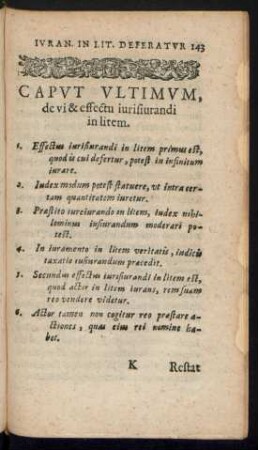 IVRAN. IN LIT. DEFERATVR 143
CAPVT VLTIMVM,
de vi & effectu iurisiurandi
in litem.
1. Effectus iurisiurandi in litem primus est,
quod is cui defertur, potest in infinitum
iurare.
2. Iudex modum potest statuere, vt intra cer-
tam quantitatem iuretur.
3. Præstito iureiurando in litem, iudex nihi-
lominus iusiurandum moderari po-
test.
4. In iuramento in litem veritatis, iudicis
taxatio iusiurandum præcedit.
5. Secundus effectus iurisiurandi in litem est,
quod actor in litem iurans, rem suam
reo vendere videtur.
6. Actor tamen non cogitur reo præstare a-
ctiones, quas eius rei nomine ha-
bet.
K Restat